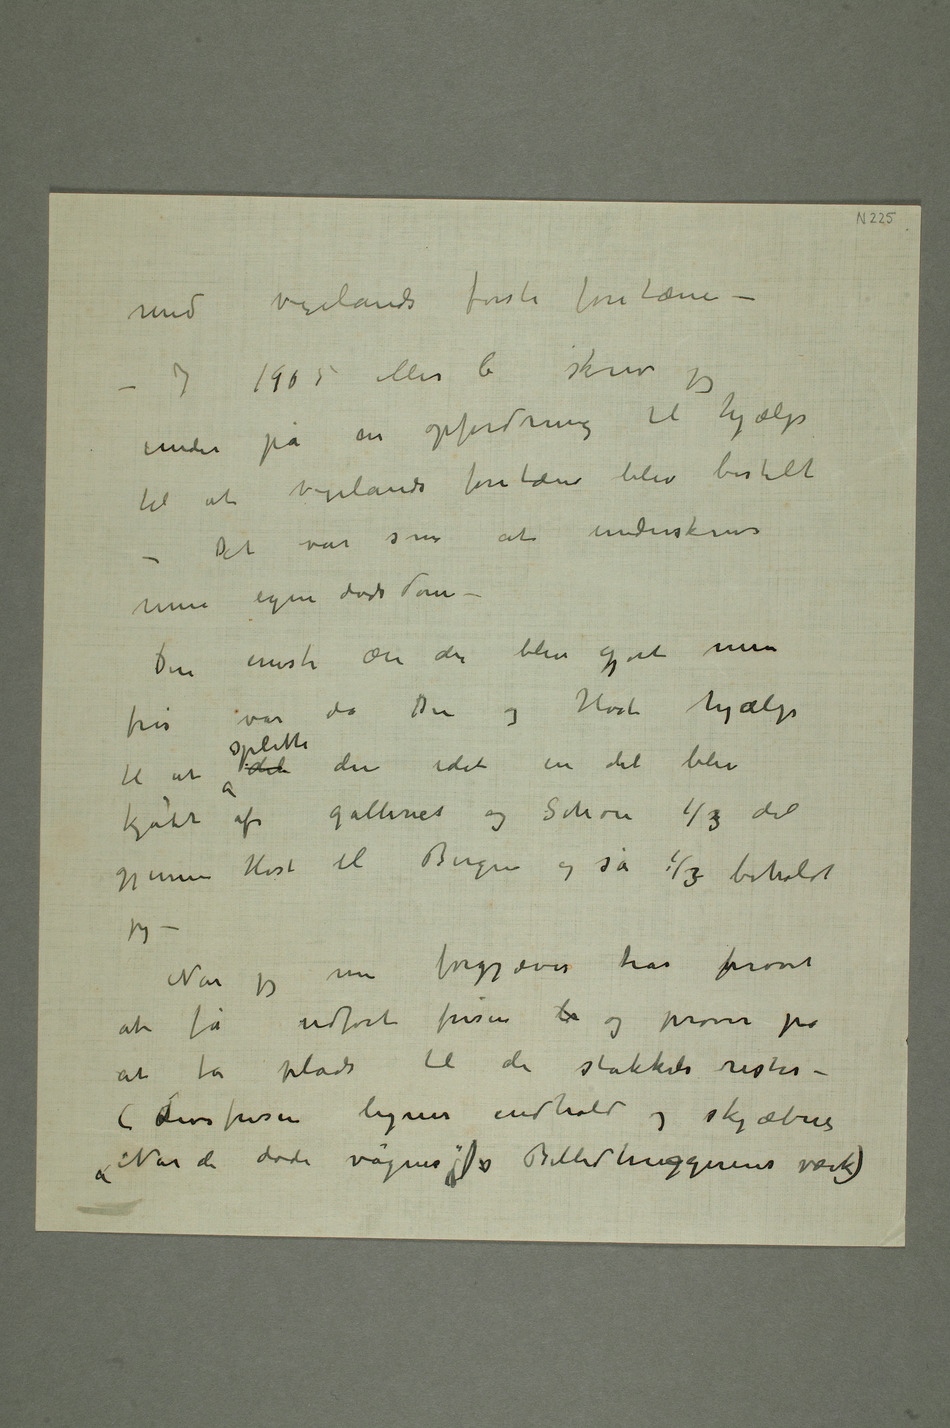 N 225
med Vigelands første fontæne –
– I 1905 eller 6 skrev jeg
under på en opfordring til hjælp
til at Vigelands fontæne blev bestilt
– Det var som at underskrive
min egen dødsdom –
Den eneste ære der blev gjort min
fris var da Du og Høst hjalp
splitte
til at dele den idet en del blev
kjøbt af galleriet og Schou 1/3 del
gjennem Høst til Bergen og så 1/3 beholdt
jeg –
Når jeg nu forgjæves har prøvet
at få udført frisen og prøver på
at få plads til de stakkels rester –
(Livsfrisen ligner indhold og skjæbne
„Når de døde vågner"s Billedhuggerens værk)